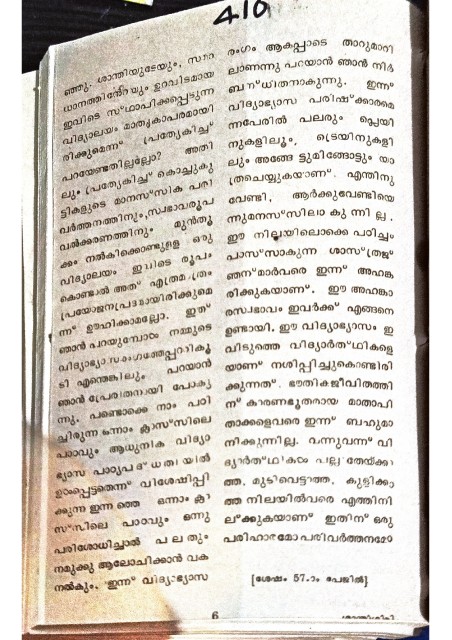 410
ഞ്ഞു. ശാന്തിയുടേയും, സമാ
ധാനത്തിൻേറയും ഉറവിടമായ
ഇവിടെ സ്ഥാപിക്കപ്പെടുന്ന
വിദ്യാലയം മാതൃകാപരമായി
രിക്കുമെന്ന് പ്രത്യേകിച്ച്
പറയേണ്ടതില്ലല്ലോ? അതി
ലും പ്രത്യേകിച്ച് കൊച്ചുകു
ട്ടികളുടെ മാനസ്സിക പരി
വർത്തനത്തിനും, സ്വഭാവരൂപ
വൽക്കരണത്തിനും മുൻതൂ
ക്കം നൽകിക്കൊണ്ടുള്ള ഒരു
വിദ്യാലയം ഇവിടെ രൂപം
കൊണ്ടാൽ അത് എത്രമാത്രം
പ്രയോജനപ്രദമായിരിക്കുമെ
ന്ന് ഊഹിക്കാമല്ലോ. ഇത്
ഞാൻ പറയുമ്പോൾ നമ്മുടെ
വിദ്യാഭ്യാസരംഗത്തേപ്പററികൂ
ടി എന്തെങ്കിലും പറയാൻ
ഞാൻ പ്രേരിതനായി പോകു
ന്നു. പണ്ടൊക്കെ നാം പഠി
ച്ചിരുന്ന ഒന്നാം ക്ലാസ്സിലെ
പാഠവും ആധുനിക വിദ്യാ
ഭ്യാസ പാഠ്യപദ്ധതിയിൽ
ഉൾപ്പെട്ടതെന്ന് വിശേഷിപ്പി
ക്കുന്ന ഇന്നത്തെ ഒന്നാം ക്ലാ
സ്സിലെ പാഠവും ഒന്നു
പരിശോധിച്ചാൽ പലതും
നമുക്കു ആലോചിക്കാൻ വക
നൽകും. ഇന്ന് വിദ്യാഭ്യാസ
രംഗം ആകപ്പാടെ താറുമാറി
ലാണന്നു പറയാൻ ഞാൻ നിർ
ബന്ധിതനാകുന്നു. ഇന്ന്
വിദ്യാഭ്യാസ പരിഷ്ക്കാരമെ
ന്നപേരിൽ പലരും പ്ലെയി
നുകളിലും, ട്രെയിനുകളി
ലും അങ്ങേട്ടുമിങ്ങോട്ടും യാ
ത്രചെയ്യുകയാണ്. എന്തിനു
വേണ്ടി, ആർക്കുവേണ്ടിയെ
ന്നുമനസ്സിലാകുന്നില്ല.
ഈ നിലയിലൊക്കെ പഠിച്ചും
പാസ്സാകുന്ന ശാസ്ത്രജ്
ഞന്മാർവരെ ഇന്ന് അഹങ്ക
രിക്കുകയാണ്. ഈ അഹങ്കാ
രസ്വഭാവം ഇവർക്ക് എങ്ങനെ
ഉണ്ടായി. ഈ വിദ്യാഭ്യാസം ഇ
വിടുത്തെ വിദ്യാർത്ഥികളെ
യാണ് നശിപ്പിച്ചുകൊണ്ടിരി
ക്കുന്നത്. ഭൗതികജീവിതത്തി
ന് കാരണഭൂതരായ മാതാപി
താക്കളെവരെ ഇന്ന് ബഹുമാ
നിക്കുന്നില്ല. വന്നുവന്ന് വി
ദ്യാർത്ഥികൾ പല്ലുതേയ്ക്കാ
ത്ത, മുടിവെട്ടാത്ത, കുളിക്കാ
ത്ത നിലയിൽവരെ എത്തിനി
ല്ക്കുകയാണ് ഇതിന് ഒരു
പരിഹാരമോ പരിവർത്തനമോ
[ശേഷം 57-ാം പേജിൽ]
6
ശാന്തിഗിരി